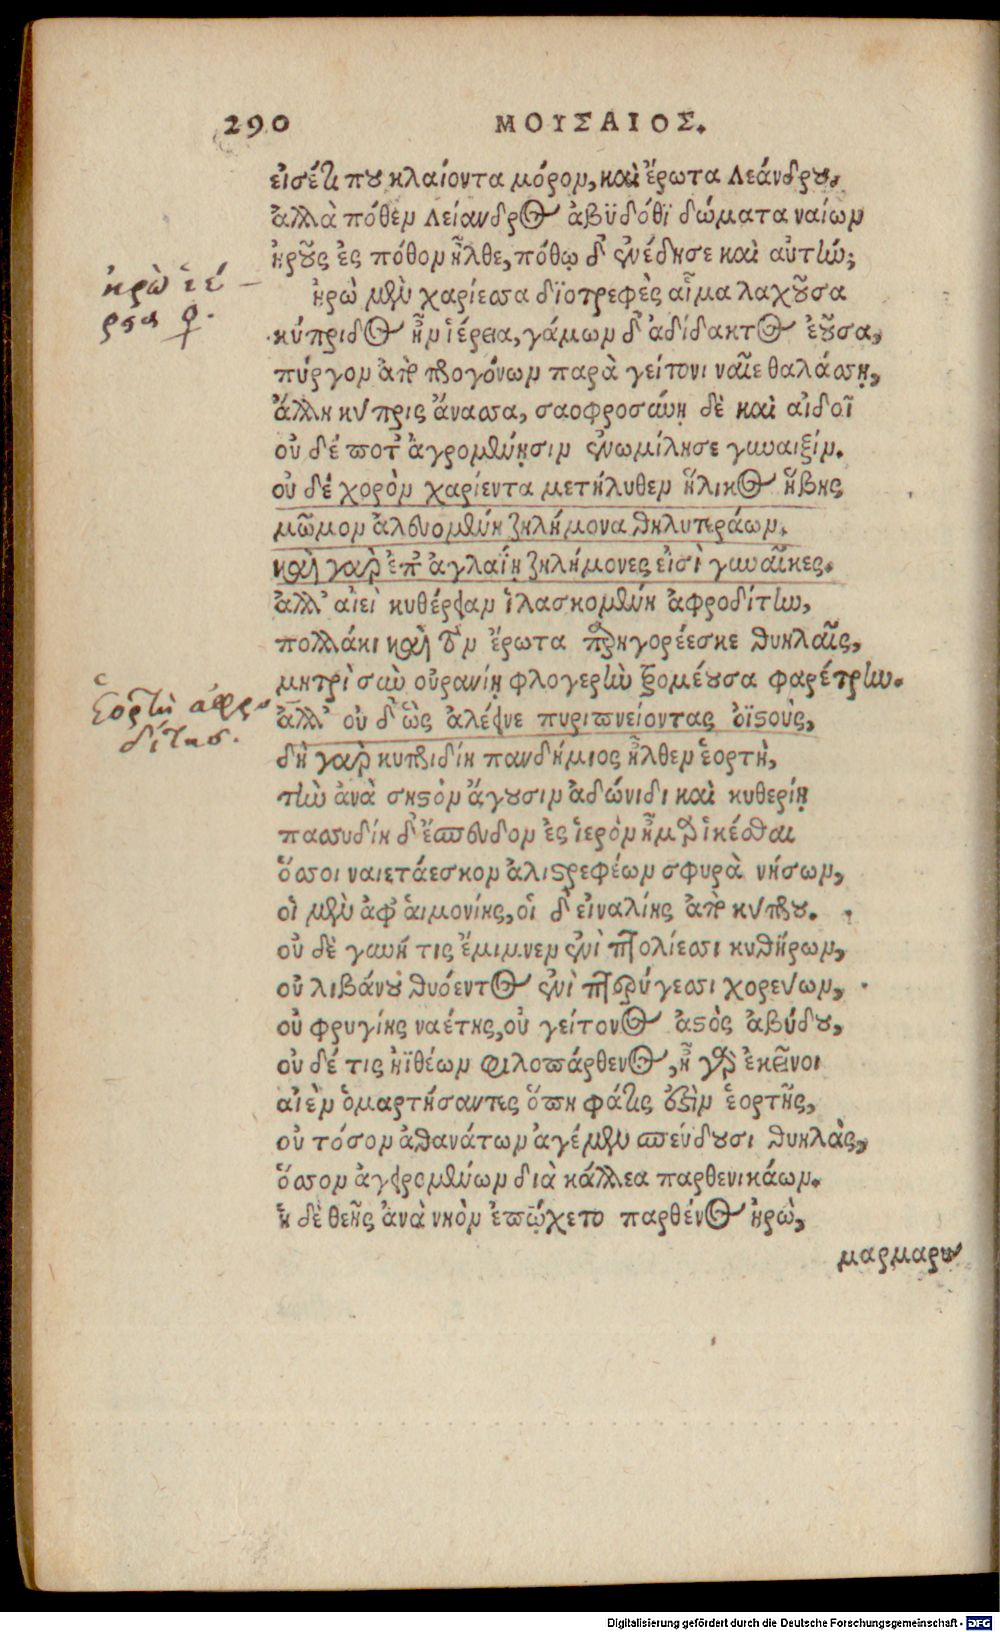 290 ΜΟΥΣΑΙΟΣ.
εἰσέτι που κλαίοντα μόρον, καὶ ἔρωτα Λεάνδρου.
ἀλλὰ πόθεν Λείανδρος ἀβϋδόθϊ δώματα ναίων
ἡροῦς ἐς πόθον ἦλθε, πόθῳ δ' ἐνέδησε καὶ αὐτήν;
ἡρὼ ἱέ
ἡρὼ μὲν χαρίεσσα δϊοτρεφὲς αἷμα λαχοῦσα
ρεια
κύπριδος ἦν ἱέρεια, γάμων δ' ἀδίδακτος ἐοῦσα,
πύργον ἀπὸ προγόνων παρὰ γείτονι ναῖε θαλάσσῃ,
ἄλλη κύπρις ἄνασσα, σαοφροσύνῃ δὲ καὶ αἰδοῖ
οὐ δέ ποτ' ἀγρομένῃσιν ἐνωμίλησε γυναιξίν.
οὐ δὲ χορὸν χαρίεντα μετήλυθεν ἥλικος ἥβης
μῶμον ἀλευομένη ζηλήμονα θηλυτεράων.
καὶ γὰρ ἐπ' ἀγλαΐῃ ζηλήμονες εἰσὶ γυναῖκες.
ἀλλ' αἰεὶ κυθέρειαν ἱλασκομένη ἀφροδίτην,
πολλάκι καὶ τὸν ἔρωτα παρηγορέεσκε θυηλαῖς,
μητρὶ σὺν οὐρανίῃ φλογερὴν τρομέουσα φαρέτρην.
Ἑορτὴ ἀφρο
ἀλλ' οὐ δ' ὣς ἀλέεινε πυριπνείοντας ὀϊστούς,
δίτης.
δὴ γὰρ κυπριδίη πανδήμιος ἦλθεν ἑορτὴ,
τὴν ἀνὰ σηστὸν ἄγουσιν ἀδώνιδι καὶ κυθερίῃ
πασσυδίη δ' ἔσπευδον ἐς ἱερὸν ἦμαρ ἱκέσθαι
ὅσσοι ναιετάεσκον ἁλιστρεφέων σφυρὰ νήσων,
οἱ μὲν ἀφ' αἱμονίης, οἱ δ' εἰναλίης ἀπὸ κύπρου.
οὐ δὲ γυνή τις ἔμιμνεν ἐνὶ πτολίεσσι κυθήρων,
οὐ λιβάνου θυόεντος ἐνὶ πτερύγεσσι χορεύων,
οὐ φρυγίης ναέτης, οὐ γείτονος ἀστὸς ἀβύδου,
οὐ δέ τις ἠϊθέων φιλοπάρθενος, ἦ γὰρ ἐκεῖνοι
αἰὲν ὁμαρτήσαντες ὅπη φάτις ἐστὶν ἑορτῆς,
οὐ τόσον ἀθανάτων ἀγέμεν σπεύδουσι θυηλὰς,
ὅσσον ἀγειρομένων διὰ κάλλεα παρθενικάων.
ἡ δὲ θεῆς ἀνὰ νηὸν ἐπῴχετο παρθένος ἡρὼ,
μαρμαρυ
Digitalisierung gefördert durch die Deutsche Forschungsgemeinschaft - DFG